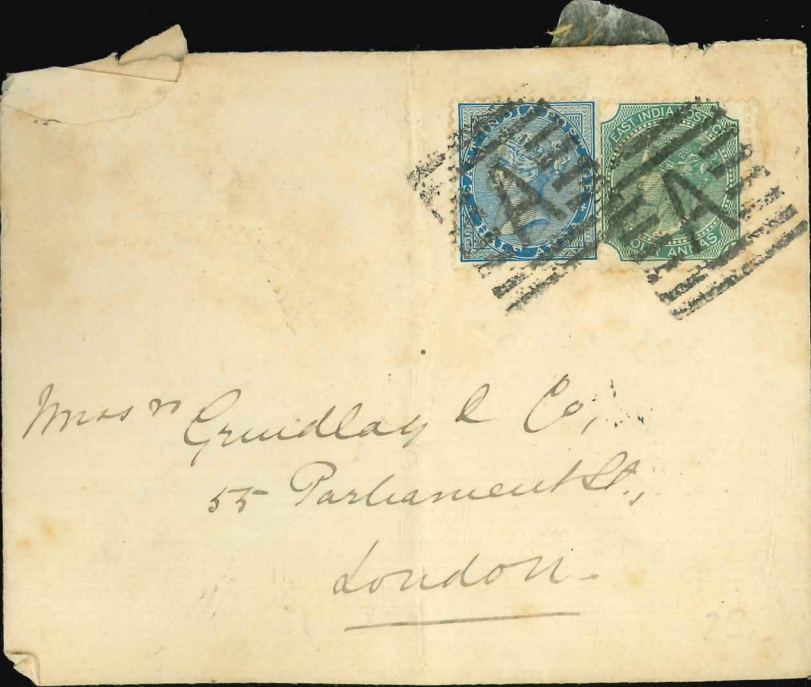 EAST INDIA POSTAGE
HALF ANNA
EAST INDIA POSTAGE
FOUR ANNAS
A
A
Messrs Grindlay & Co,
55 Parliament St,
London